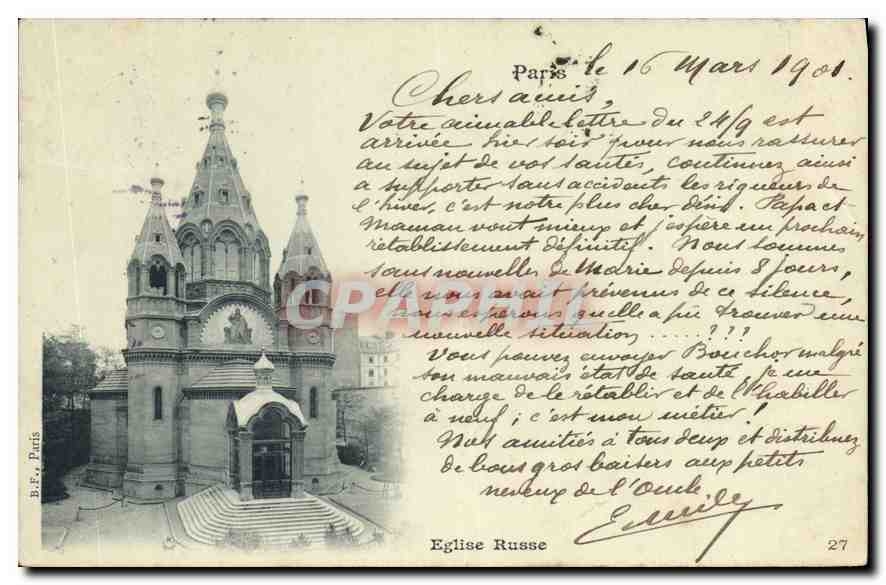 Paris le 16 Mars 1901.
Chers amis,
Votre aimable lettre du 24/9 est
arrivée hier soir pour nous rassurer
au sujet de vos santés, continuez ainsi
a supporter sans accidents les rigueurs de
l'hiver, c'est notre plus cher désir. Papa et
Maman vont mieux et j'espère un prochain
rétablissement définitif. Nous sommes
sans nouvelles de Marie depuis 8 jours,
elle nous avait prévenus de ce silence,
nous espérons qu'elle a pu trouver une
nouvelle situation ..... ???
CPARAMA
Vous pouvez envoyer Bouchor malgré
son mauvais état de santé, je me
charge de le rétablir et de l'habiller
à neuf ; c'est mon métier !
Nos amitiés à tous deux et distribuez
de bons gros baisers aux petits
neveux de l'Oncle
Emile
B.F., Paris
Eglise Russe
27